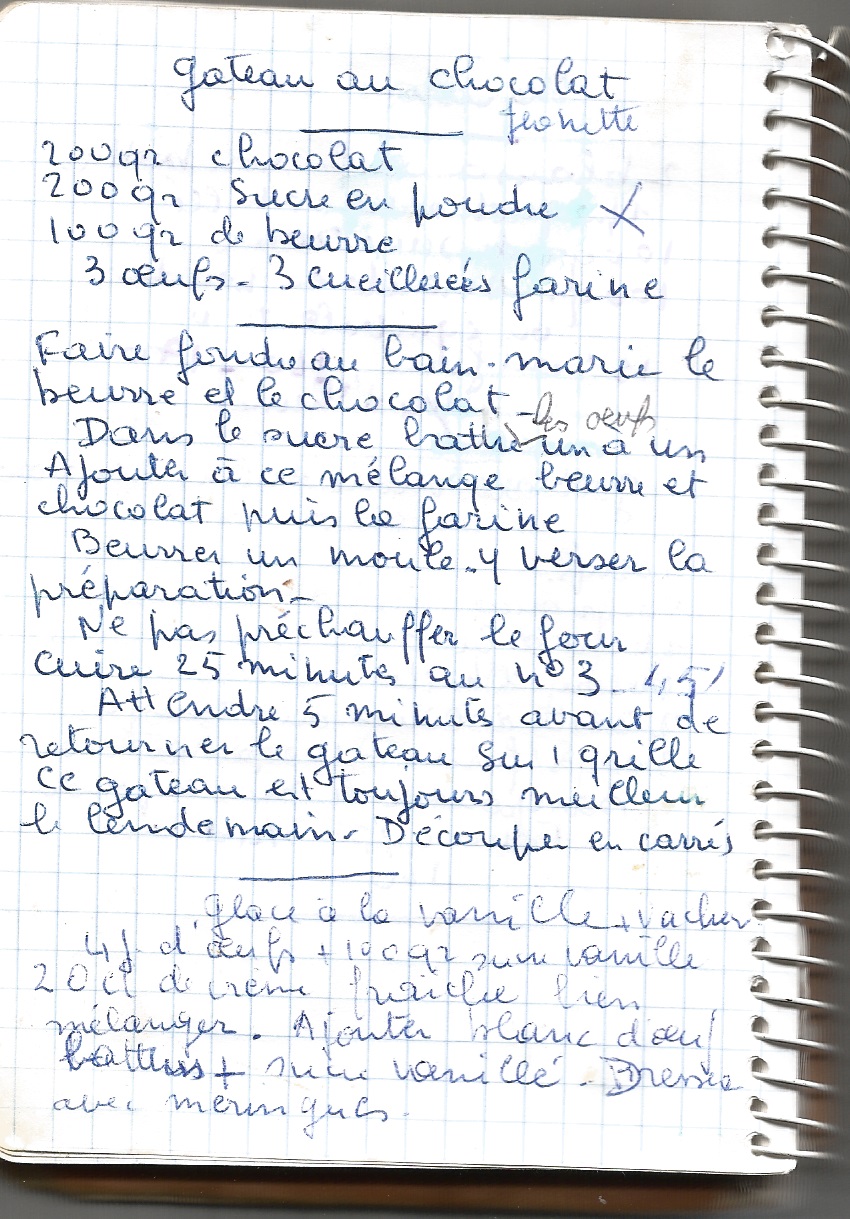 gateau au chocolat
Jeanette
200 gr chocolat
200 gr Sucre en poudre X
100 gr de beurre
3 œufs - 3 cueillerées farine
Faire fondre au bain-marie le
beurre et le chocolat -
les œufs
Dans le sucre battre un à un
Ajouter à ce mélange beurre et
chocolat puis la farine
Beurrer un moule - y verser la
préparation -
Ne pas préchauffer le four
cuire 25 minutes au n° 3
Attendre 5 minutes avant de
retourner le gateau sur 1 grille
Ce gateau est toujours meilleur
le lendemain - Découper en carrés
glace à la vanille + vacher
4 j. d'œufs + 100 gr sucre vanille
20 cl de crème fraiche bien
mélanger. Ajouter blanc d'œuf
battus + sucre vanillé - Dresser
avec meringues.